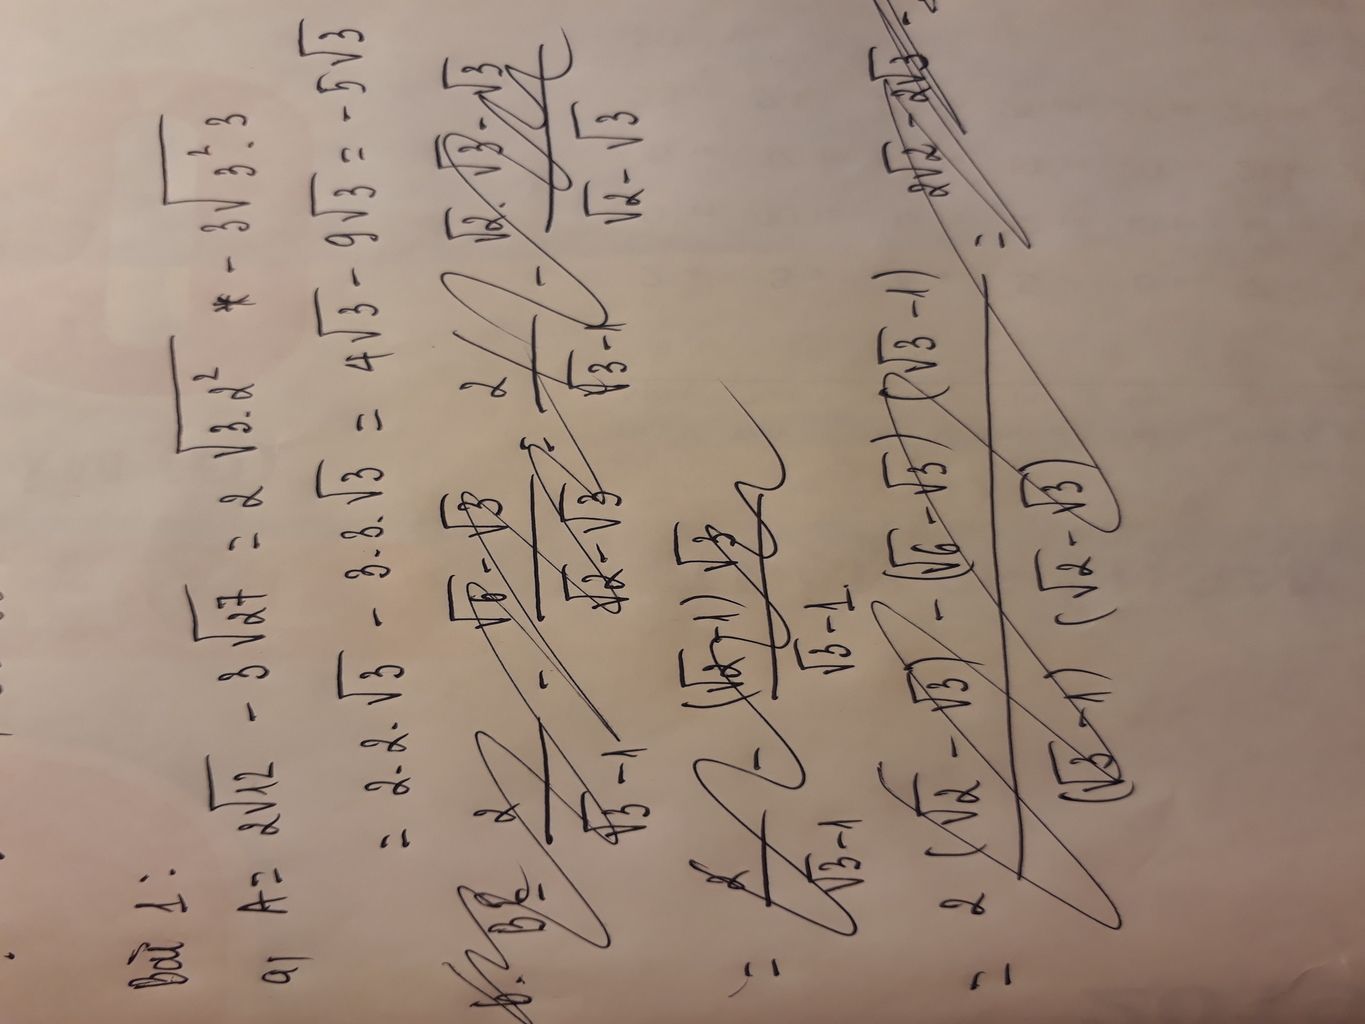 Bài 1:
a) A = 2√12 - 3√27 = 2√(3.2²) - 3√(3².3)
= 2.2.√3 - 3.3.√3 = 4√3 - 9√3 = -5√3
b. B = 2/(√3-1) - (√6-√3)/(√2-√3) = 2/(√3-1) - (√2.√3-√3)/(√2-√3)
= 2/(√3-1) - (√2-1)√3/(√3-1)
= (2(√2-√3) - (√6-√3)(√3-1))/((√3-1)(√2-√3)) = 2√2-2√3-